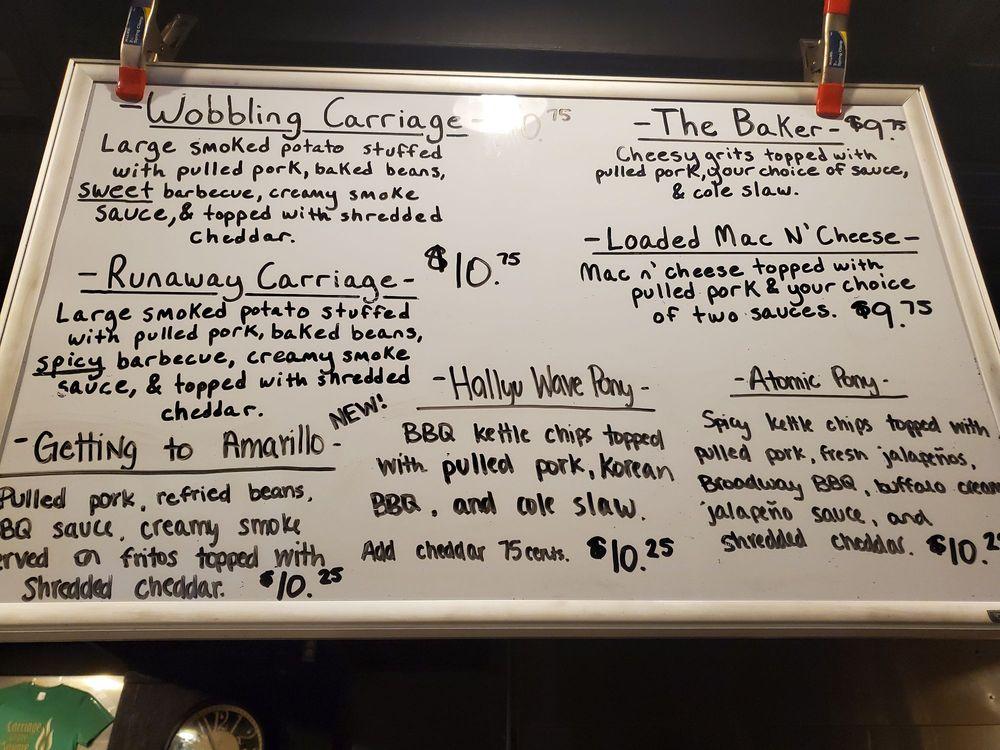 -Wobbling Carriage-
Large smoked potato stuffed
with pulled pork, baked beans,
sweet barbecue, creamy smoke
sauce, & topped with shredded
cheddar.
-Runaway Carriage- $10.75
Large smoked potato stuffed
with pulled pork, baked beans,
spicy barbecue, creamy smoke
sauce, & topped with shredded
cheddar.
NEW!
-Getting to Amarillo-
Pulled pork, refried beans,
BQ sauce, creamy smoke
erved on fritos topped with
Shredded cheddar. $10.25
-The Baker- $9.75
Cheesy grits topped with
pulled pork, your choice of sauce,
& cole slaw.
-Loaded Mac N' Cheese-
Mac n' cheese topped with
pulled pork & your choice
of two sauces. $9.75
-Hallyu Wave Pony-
BBQ kettle chips topped
with pulled pork, Korean
BBQ, and cole slaw.
Add cheddar 75 cents. $10.25
-Atomic Pony-
Spicy kettle chips topped with
pulled pork, fresh jalapeños,
Broadway BBQ, buffalo cream
jalapeño sauce, and
shredded cheddar. $10.2
Carriage